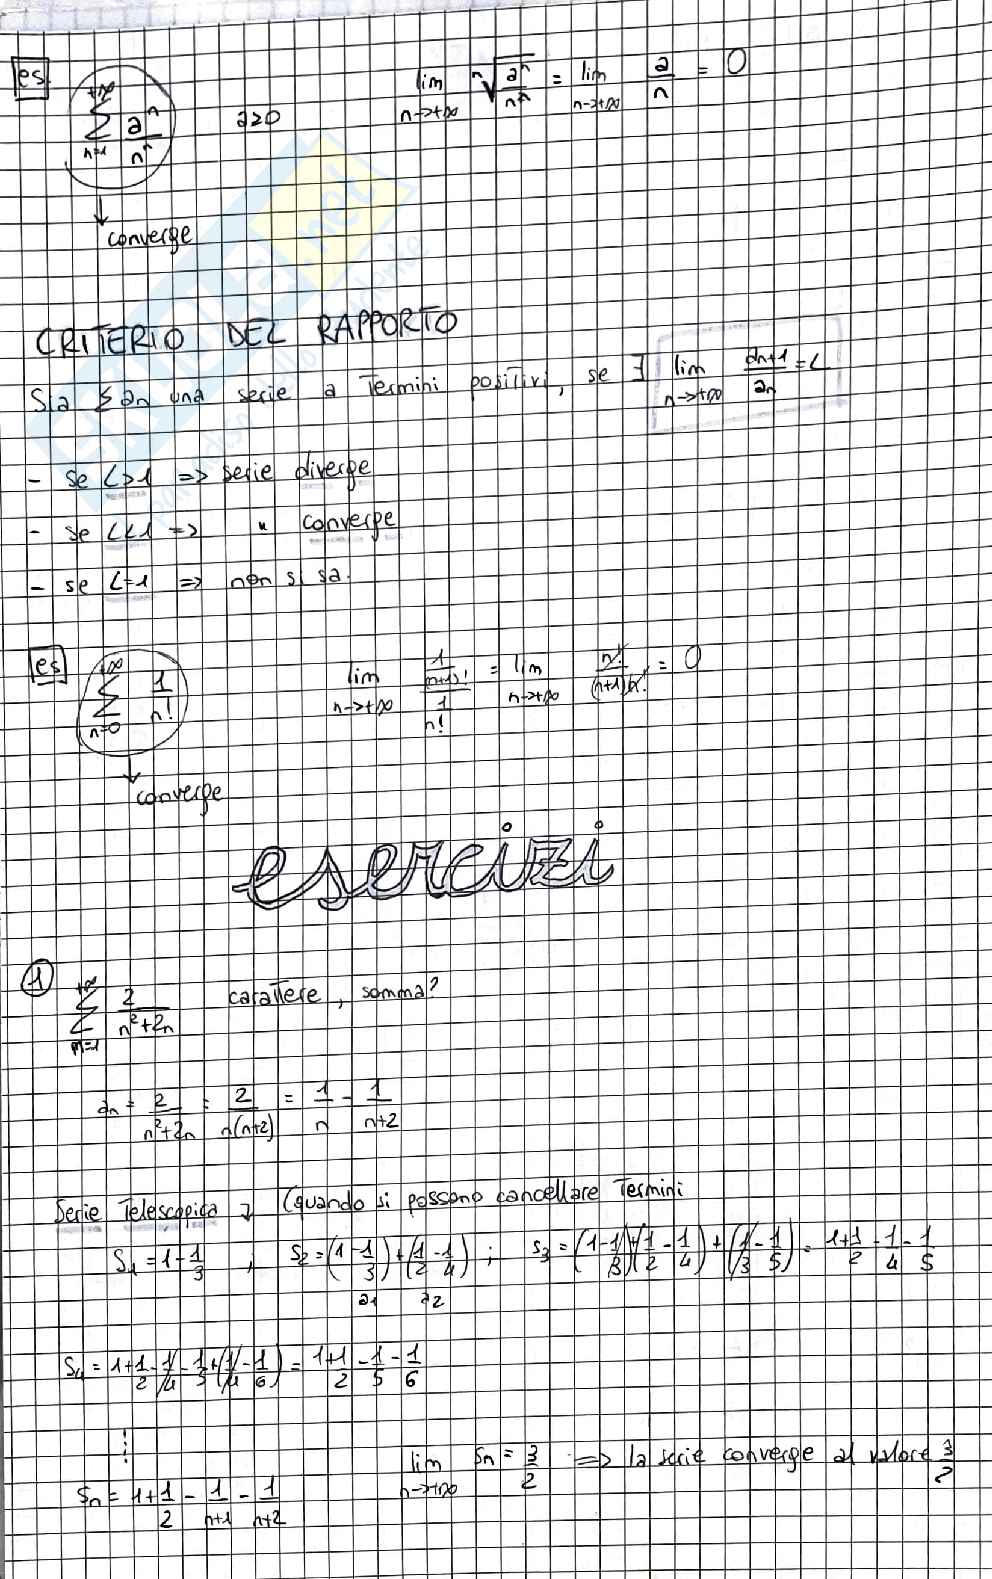 es
+∞ ∑ n=1 a^n / n^n a>0 lim n->+∞ ⁿ√(a^n / n^n) = lim n->+∞ a/n = 0
converge
CRITERIO DEL RAPPORTO
Sia ∑an una serie a Termini positivi, se ∃ lim n->+∞ an+1/an = L
- se L>1 => serie diverge
- se L<1 => " converge
- se L=1 => non si sa.
es
+∞ ∑ n=0 1/n! lim n->+∞ (1/(n+1)!)/(1/n!) = lim n->+∞ n!/(n+1)n! = 0
converge
esercizi
1 +∞ ∑ n=1 2/(n²+2n) carattere, somma?
an = 2/(n²+2n) = 2/n(n+2) = 1/n - 1/(n+2)
Serie Telescopica (quando si possono cancellare Termini
S1 = 1-1/3 , S2 = (1-1/3)+(1/2-1/4) ; S3 = (1-1/3)+(1/2-1/4)+(1/3-1/5) = 1+1/2-1/4-1/5
a1 a2
S4 = 1+1/2-1/4-1/5+(1/4-1/6) = 1+1/2-1/5-1/6
⋮
Sn = 1+1/2 - 1/(n+1) - 1/(n+2) lim n->+∞ Sn = 3/2 => la serie converge al valore 3/2